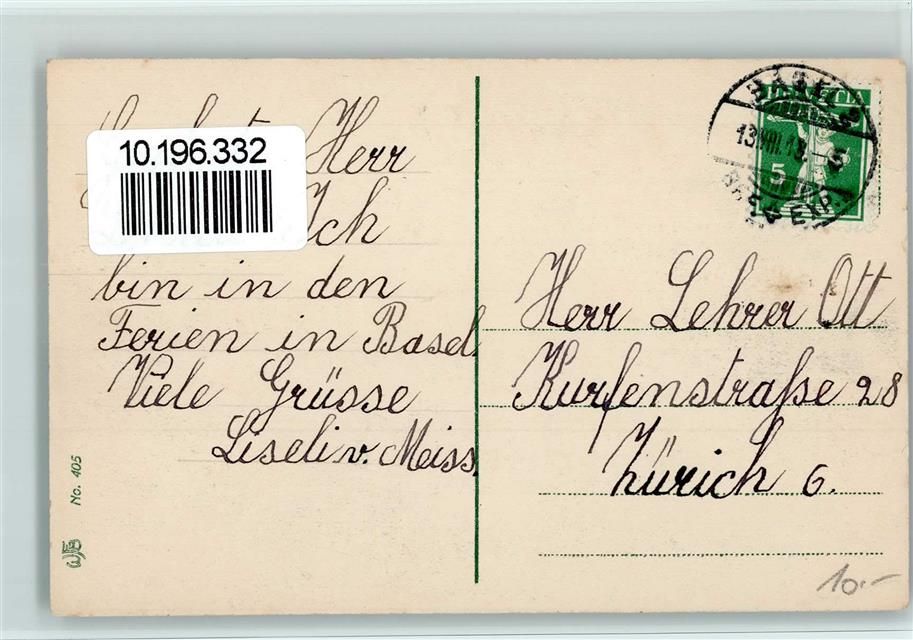 10.196.332
Herr
Ich
bin in den
Ferien in Basel.
Viele Grüsse
Liseli v. Meiss.
No. 405
BASEL 2
13.VIII.13.-5
EXP.
HELVETIA
5
Herr Lehrer Ott
Kurfenstraſse 28
Zürich 6.
10.-